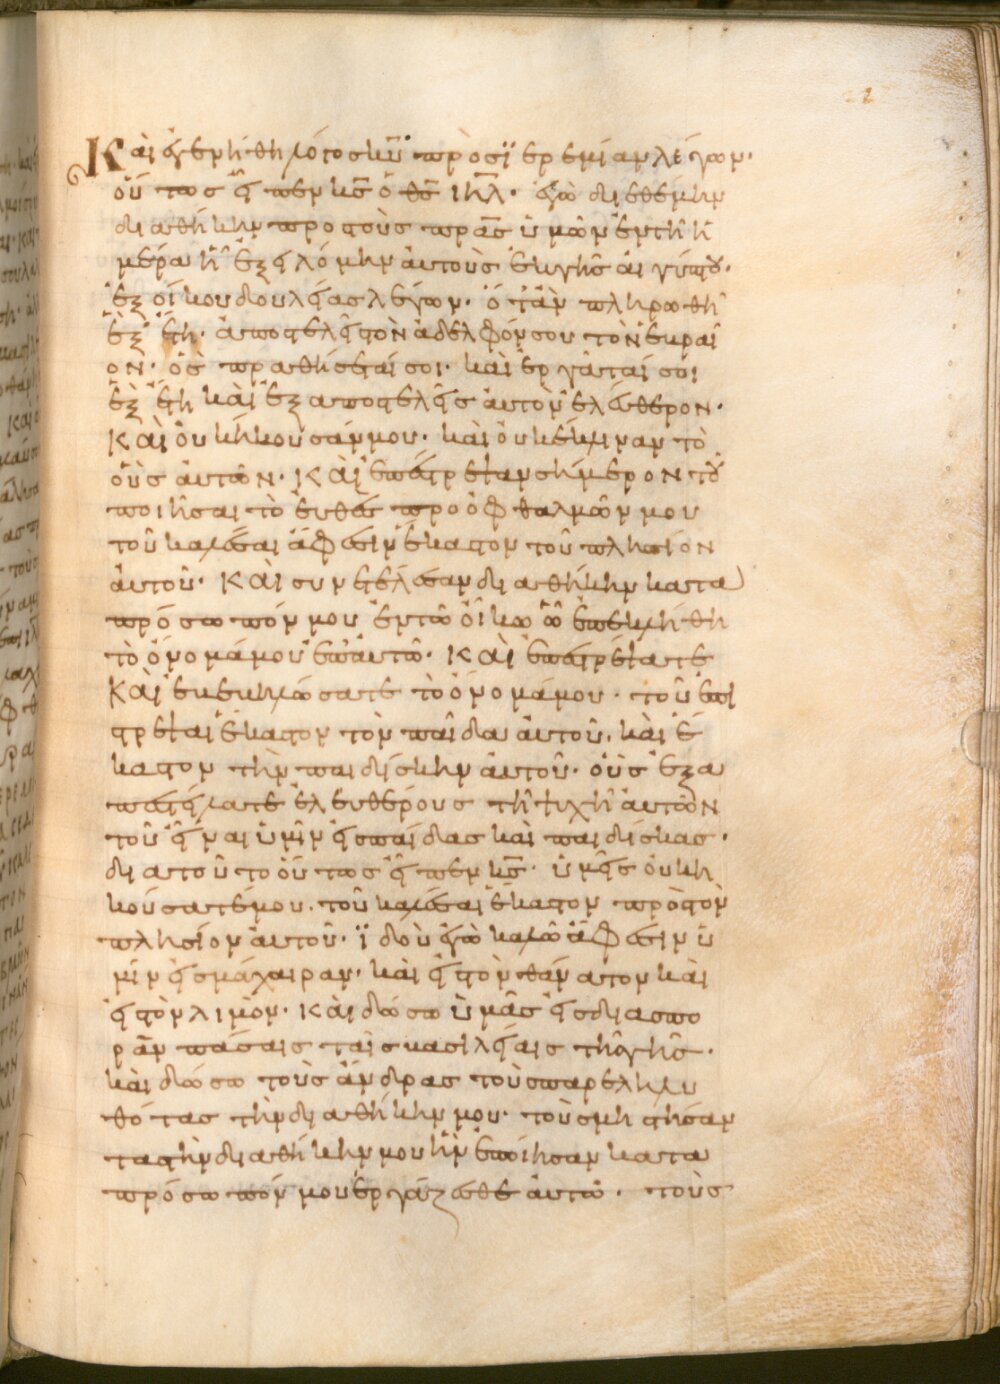 Καὶ ἐγενήθη λόγος κ̅υ̅ πρὸς ϊερεμίαν λέγων·
οὕτως εἶπεν κ̅ς̅ ὁ θ̅ς̅ ι̅η̅λ̅· ἐγὼ διεθέμην
διαθήκην πρὸς τοὺς π̅ρ̅α̅ς̅ ὑμῶν ἐν τῆ ἡ
μέρα ἧ ἐξειλόμην ἀυτοὺς ἐκ γῆς ἀιγύπτου·
ἐξ οἴκου δουλείας λέγων· ὅταν πληρωθῆ
ἓξ ἔτη· ἀποστελεῖς τὸν ἀδελφόν σου τὸν ἑβραῖ
ον· ὃς πραθήσεταί σοι· καὶ ἐργάταί σοι
ἓξ ἔτη καὶ ἐξαποστελεῖς ἀυτὸν ἐλεύθερον·
Καὶ ὀυκ ἤκουσάν μου· καὶ ὀυκ ἔκλιναν τὸ
οὖς ἀυτῶν· Καὶ ἐπέστρεψαν σήμερον τοῦ
ποιῆσαι τὸ ἐυθὲς προ ὀφθαλμῶν μου
τοῦ καλέσαι ἄφεσιν ἕκαστον τοῦ πλησίον
ἀυτοῦ· Καὶ συνετέλεσαν διαθήκην κατα
πρόσωπόν μου ἐν τῶ ὀίκω ὧ ἐπεκλήθη
τὸ ὄνομά μου ἐπ' ἀυτῶ· Καὶ ἐπεστρέψατε
Καὶ ἐβεβηλώσατε τὸ ὄνομά μου· τοῦ ἐπι
στρέψαι ἕκαστον τὸν παῖδα ἀυτοῦ, καὶ ἕ
καστον τὴν παιδίσκην ἀυτοῦ· οὓς ἐξα
πεστείλατε ἐλευθέρους τῆ ψυχῆ ἀυτῶν
τοῦ εἶναι ὑμῖν εἰς παίδας καὶ παιδίσκας·
διατοῦτο οὕτως εἶπεν κ̅ς̅· ὑμεῖς ὀυκ ἠ
κούσατέ μου. τοῦ καλέσαι ἕκαστον πρὸς τὸν
πλησίον ἀυτοῦ· ϊδοὺ ἐγὼ καλῶ ἄφεσιν ὑ
μῖν εἰς μάχαιραν· καὶ εἰς τὸν θάνατον καὶ
εἰς τὸν λιμὸν· Καὶ δώσω ὑμᾶς εἰς διασπο
ρὰν πάσαις ταῖς βασιλείαις τῆς γῆς·
καὶ δώσω τοὺς ἄνδρας τοὺς παρεληλυ
θότας τὴν διαθήκην μου· τοὺς μὴ στήσαν
τας τὴν διαθήκην μου ἣν ἐποίησαν κατα
πρόσωπόν μου ἐργάζεσθε ἀυτῶ· τοὺς